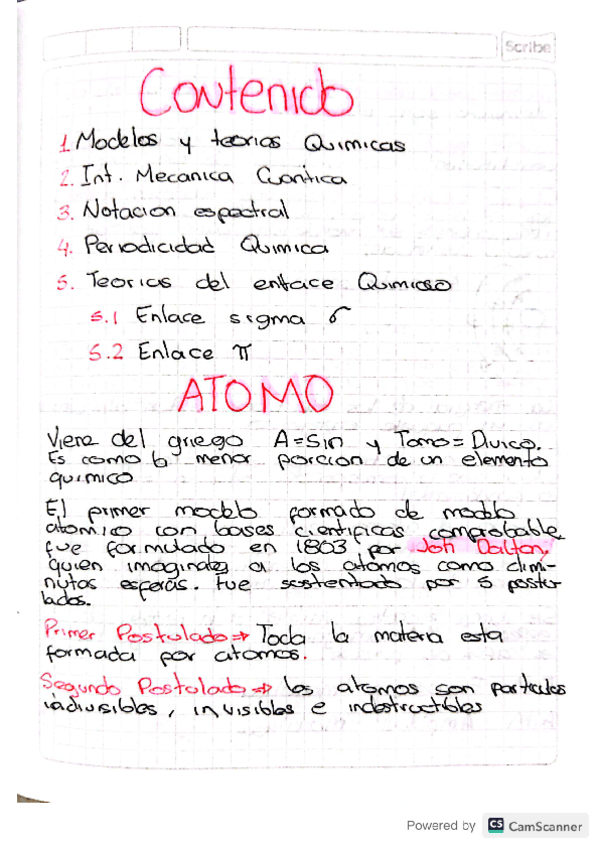 Scribe
Contenido
1. Modelos y teorias Quimicas
2. Int. Mecanica Cuantica
3. Notacion espectral
4. Periodicidad Quimica
5. Teorias del enlace Quimico
5.1 Enlace sigma σ
5.2 Enlace π
ATOMO
Viene del griego A=Sin y Tomo=Divico.
Es como la menor porcion de un elemento
quimico
El primer modelo formado de modelo
atomico con bases cientificas comprobable
fue formulado en 1803 por Joh Dalton,
quien imaginaba a los atomos como dimi-
nutas esferas. Fue sustentado por 5 postu-
lados.
Primer Postulado⇒ Toda la materia esta
formada por atomos.
Segundo Postulado⇒ los atomos son particulas
indivisibles, invisibles e indestructibles
Powered by CS CamScanner